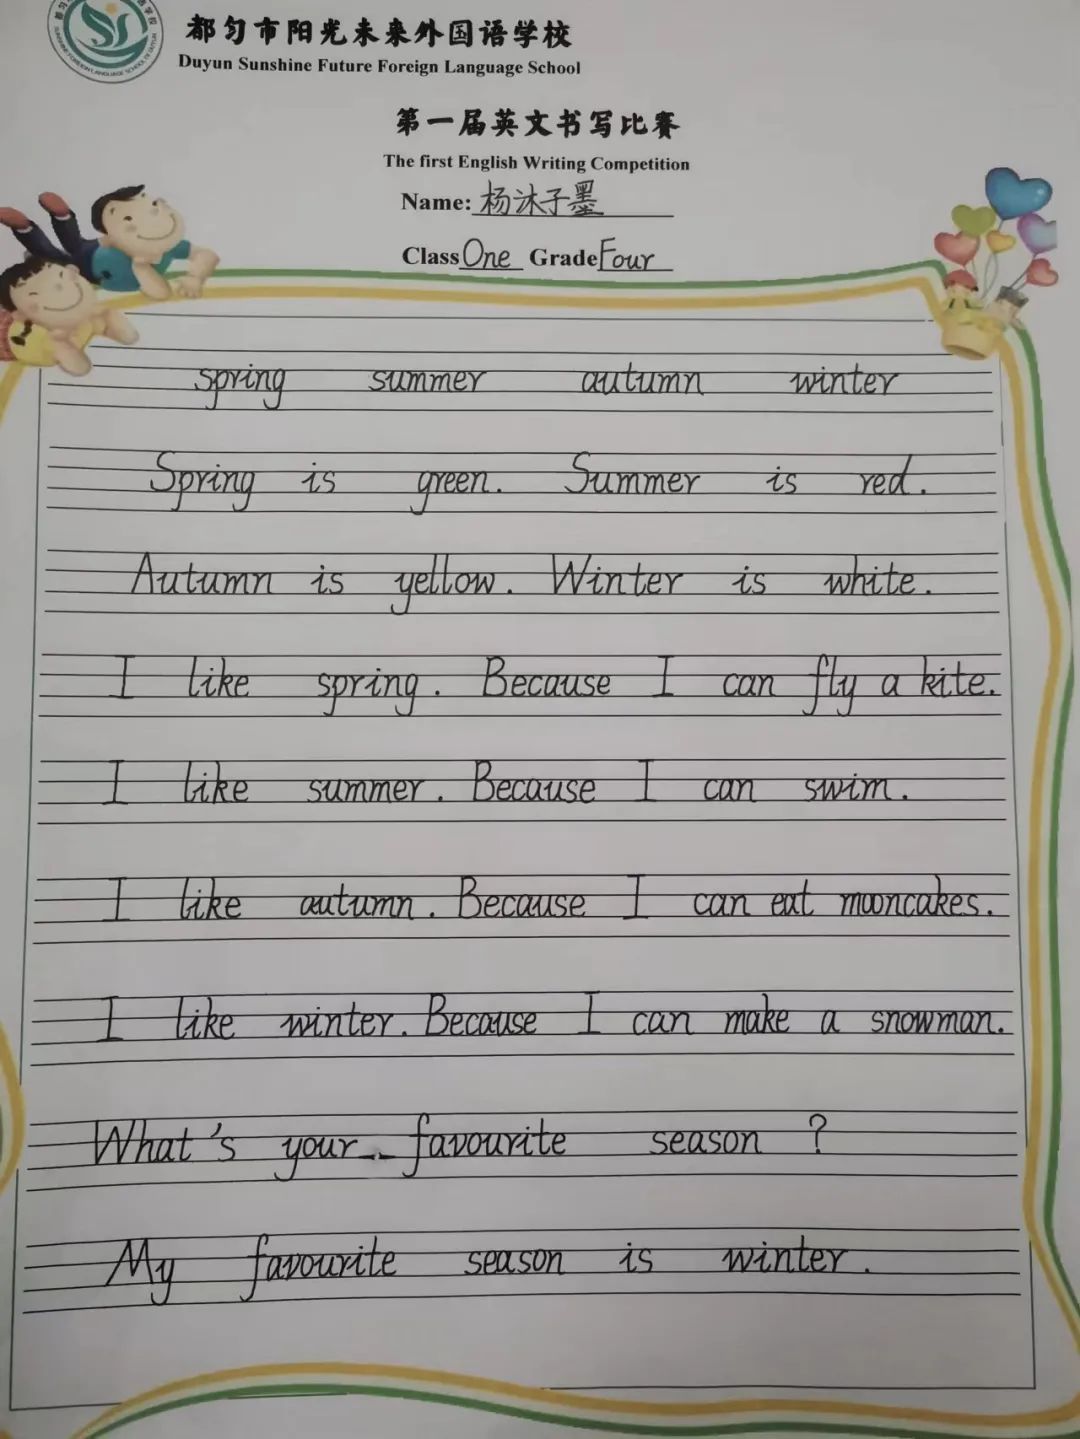 都匀市阳光未来外国语学校
Duyun Sunshine Future Foreign Language School
第一届英文书写比赛
The first English Writing Competition
Name: 杨沐子墨
Class One Grade Four
spring summer autumn winter
Spring is green. Summer is red.
Autumn is yellow. Winter is white.
I like spring. Because I can fly a kite.
I like summer. Because I can swim.
I like autumn. Because I can eat mooncakes.
I like winter. Because I can make a snowman.
What's your favourite season?
My favourite season is winter.